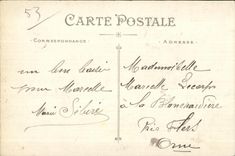 53
CARTE POSTALE
CORRESPONDANCE
ADRESSE
un bon baiser
pour Marcelle
Marie
Mademoiselle
Marcelle Lecarps
à la Blanchardière
Près Flers
Orne